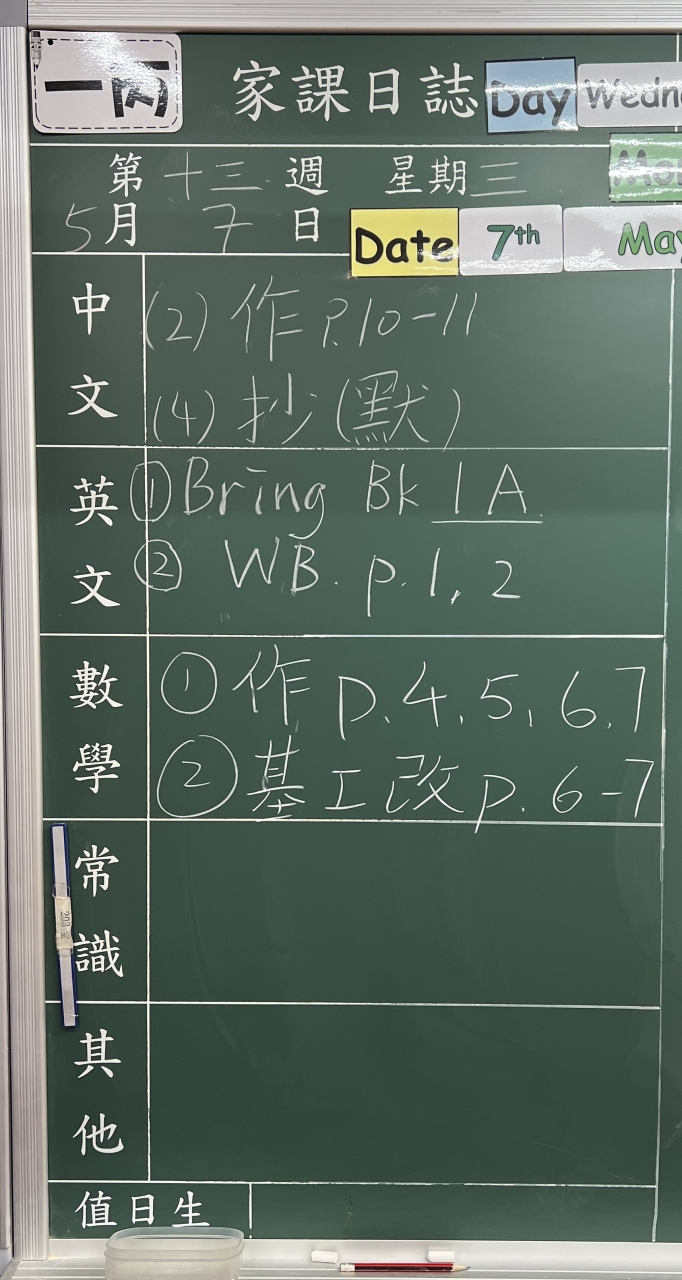 一丙 家課日誌 Day Wedn
第十三週 星期三
5月7日 Date 7th May
中文 (2) 作 P.10-11
(4) 抄(默)
英文 ① Bring Bk 1A.
② WB. p.1, 2
數學 ① 作 p.4, 5, 6, 7
② 基工改 p.6-7
常識
其他
值日生